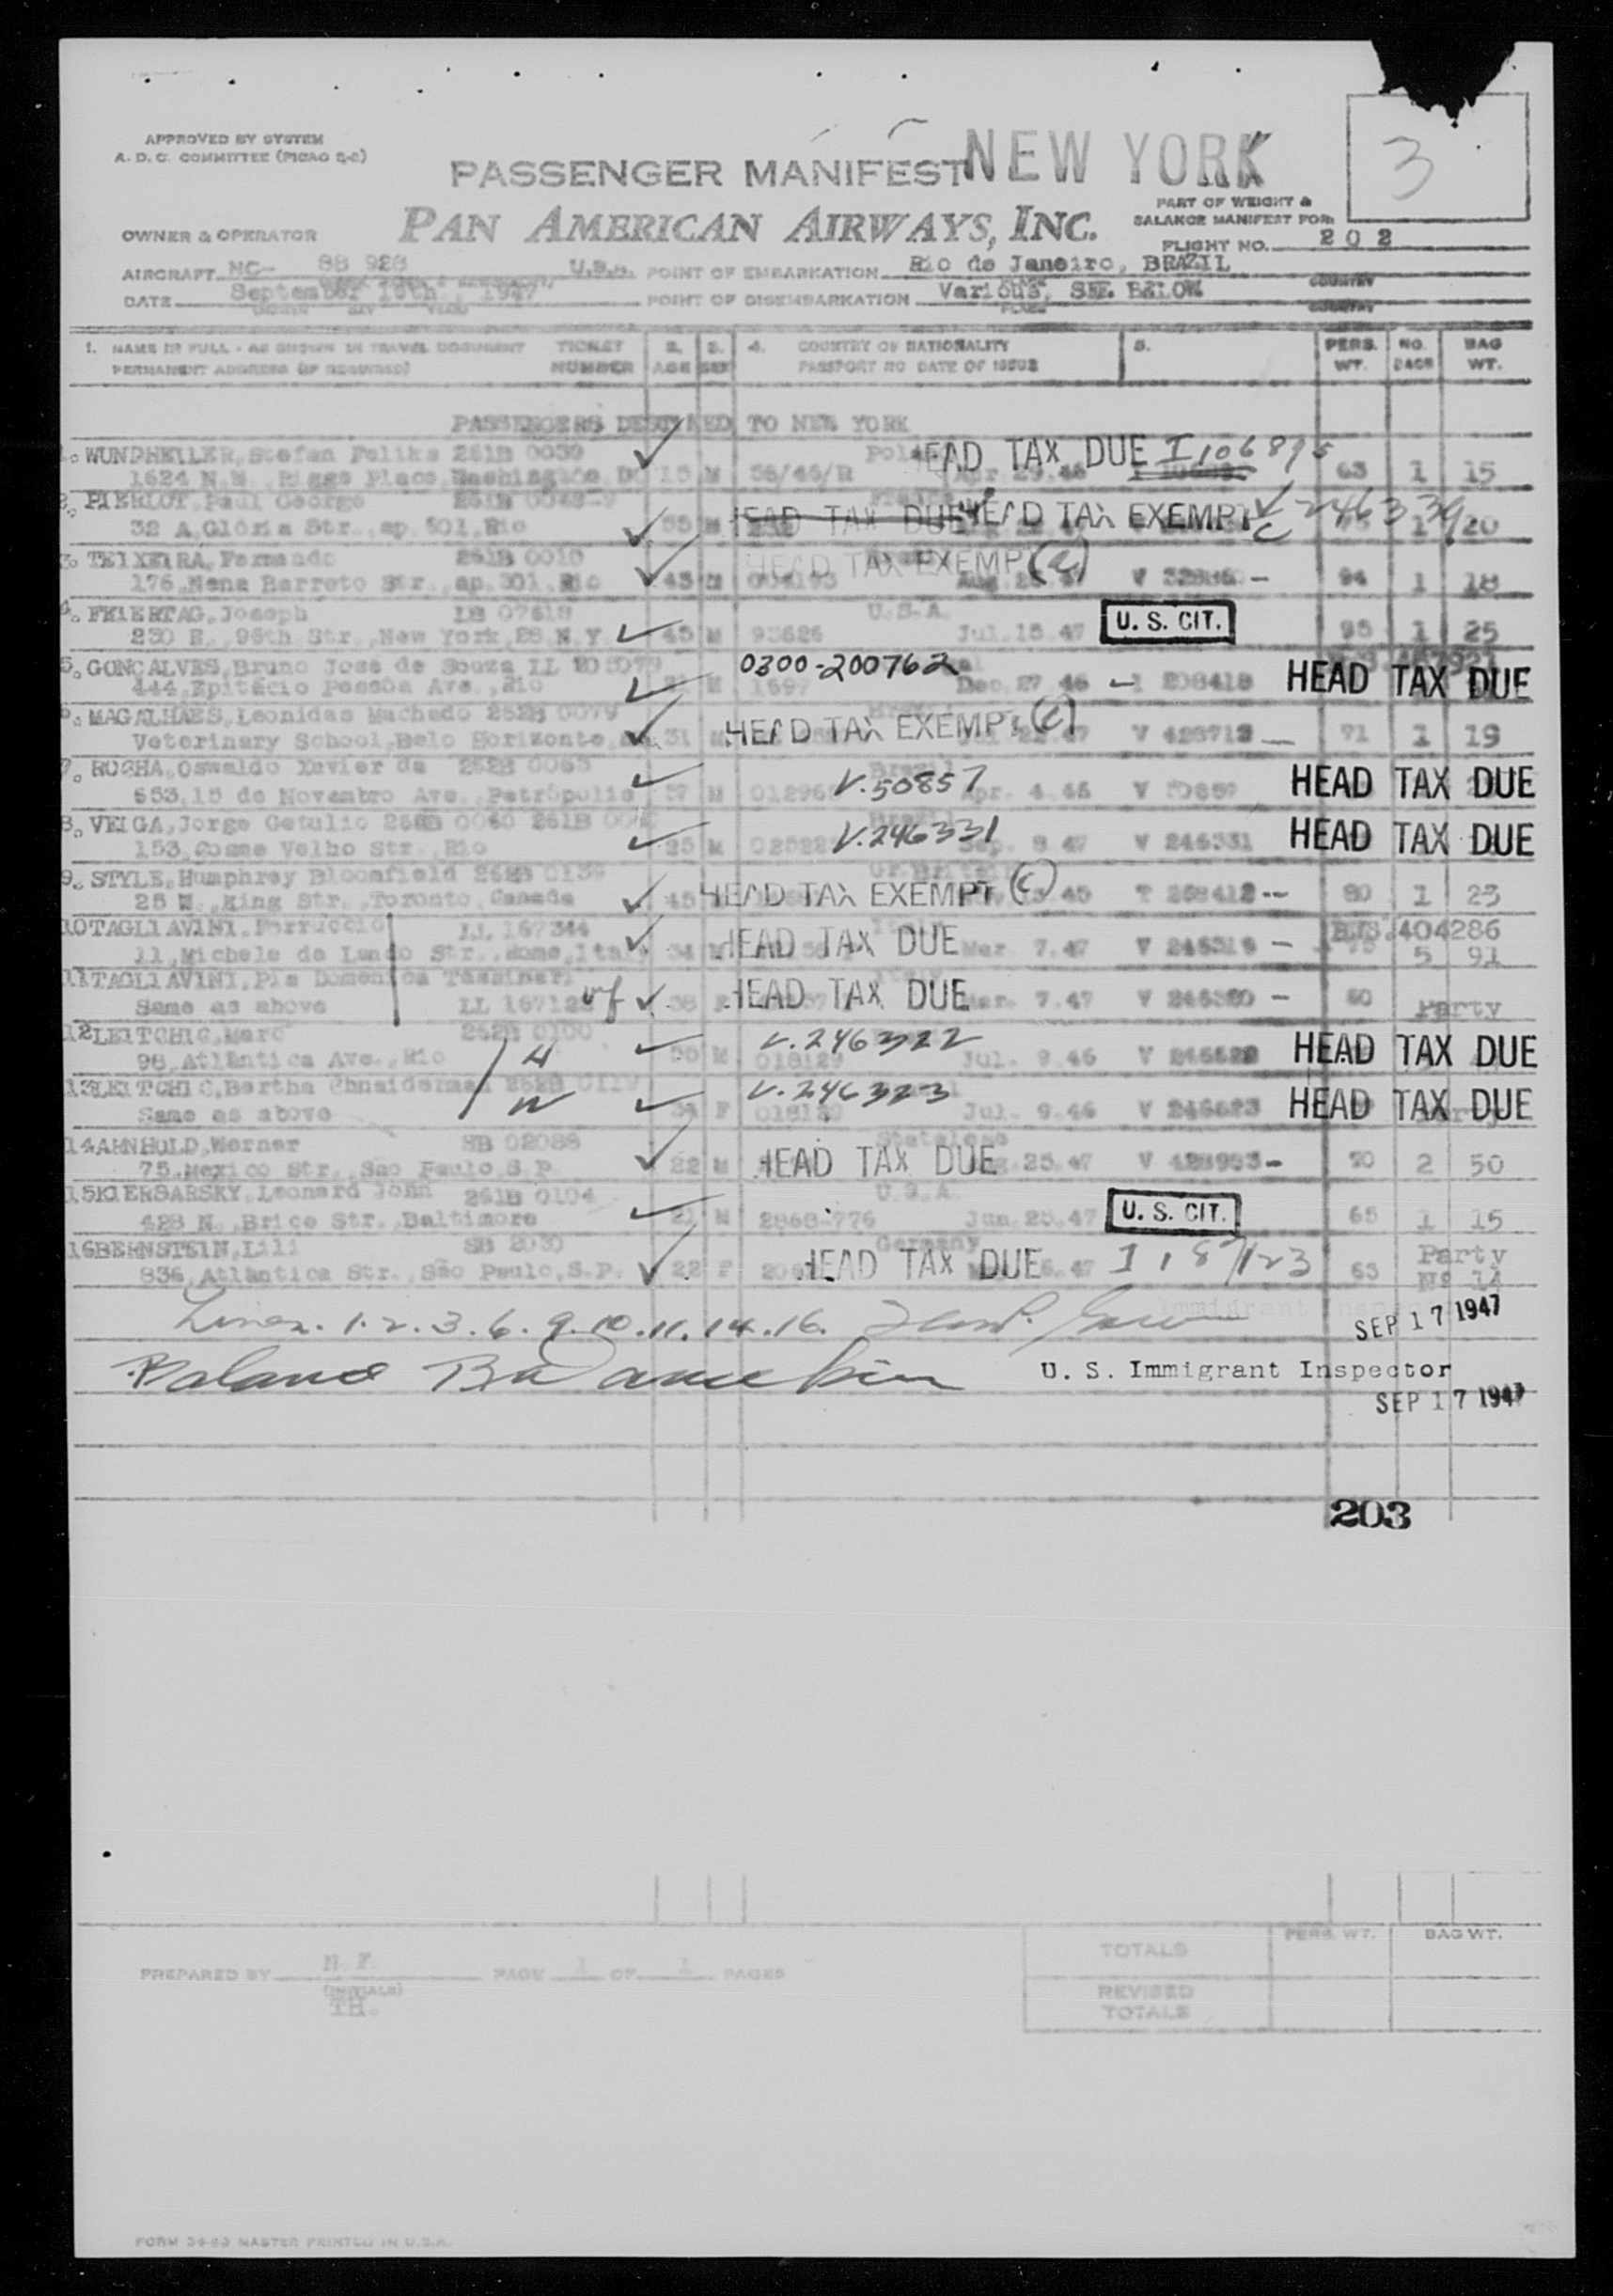 APPROVED BY SYSTEM
A. D. C. COMMITTEE (PICAO
PASSENGER MANIFEST NEW YORK
3
PART OF WEIGHT &
BALANCE MANIFEST FOR:
OWNER & OPERATOR PAN AMERICAN AIRWAYS, INC.
FLIGHT NO. 202
AIRCRAFT NC- 88 928 U.S.A. POINT OF EMBARKATION Rio de Janeiro, BRAZIL
COUNTRY
DATE September 16th, 1947 POINT OF DISEMBARKATION Various, SEE BELOW
MONTH DAY YEAR PLACE COUNTRY
1. NAME IN FULL - AS SHOWN IN TRAVEL DOCUMENT TICKET 2. 3. 4. COUNTRY OF NATIONALITY 5. PERS. NO. BAG
PERMANENT ADDRESS (IF REQUIRED) NUMBER AGE SEX PASSPORT NO DATE OF ISSUE WT. BAGS WT.
PASSENGERS DESTINED TO NEW YORK
1. WUNDHEILER, Stefan Feliks 261B 0039 HEAD TAX DUE
1624 N.W. Riggs Place, Washington DC 15 M 56/46/R Apr 29.46 63 1 15
2. PIERLOT, Paul George France
32 A, Glória Str., ap. 501, Rio 55 M HEAD TAX DUE HEAD TAX EXEMPT 1 20
3. TEIXEIRA, Fernando 261B 0010 HEAD TAX EXEMPT (C)
176, Mena Barreto Str., ap. 301, Rio 43 M Aug 94 1 18
4. FEIERTAG, Joseph LB 07618 U.S.A. U. S. CIT.
230 E., 96th Str., New York, 28 N.Y 45 M 93626 Jul.15.47 95 1 25
5. GONÇALVES, Bruno José de Souza LL 0300-200762 HEAD TAX DUE
444, Epitácio Pessôa Ave., Rio 31 M 1697 Dec. 27 46
6. MAGALHAES, Leonidas Machado 252B 0079 HEAD TAX EXEMPT (C)
Veterinary School, Belo Horizonte 31 M V 428713 71 1 19
7. ROCHA, Oswaldo Xavier da 252B 0065 Brazil V.50857 HEAD TAX DUE
653, 15 de Novembro Ave., Petrópolis 37 M Apr. 4.46
8. VEIGA, Jorge Getulio V.246331 HEAD TAX DUE
153, Cosme Velho Str., Rio 25 M Sep. 8 47 V 246331
9. STYLE, Humphrey Bloomfield 252B 0139 Gr. Britain
25 W., King Str., Toronto, Canada 45 HEAD TAX EXEMPT (C) 80 1 23
10 TAGLIAVINI, Ferruccio LL 167344 Italy 404286
11, Michele de Lando Str., Rome, Italy 34 M HEAD TAX DUE Mar. 7.47 V 246319 5 91
11 TAGLIAVINI, Pia Domenica Tassinari Italy
Same as above wf 38 F HEAD TAX DUE Mar. 7.47 V 246320 60 Party
12 LEITCHIC, Marc 252B 0100 V.246322
98, Atlântica Ave., Rio H M 018129 Jul. 9.46 HEAD TAX DUE
13 LEITCHIC, Bertha Chnaiderman 252B 0119 V.246323
Same as above W F Jul. 9.46 HEAD TAX DUE
14 ARNHOLD, Werner SB 02088 Stateless
75, Mexico Str., Sao Paulo, S.P. 22 M HEAD TAX DUE 25.47 V 70 2 50
15 KIERSARSKY, Leonard John 261B 0104 U.S.A.
428 N., Brice Str., Baltimore 21 M 2868-776 Jun.25.47 U. S. CIT. 65 1 15
16 BERNSTEIN, Lili SB 2030 Germany Party
836, Atlântica Str., São Paulo, S.P. 22 F HEAD TAX DUE 6.47 I 187123 63 Nº 14
Lines. 1.2.3.6.9.10.11.14.16.
SEP 17 1947
U. S. Immigrant Inspector
SEP 17 1947
203
PREPARED BY N.F. PAGE 1 OF 1 PAGES
(INITIALS)
TH.
PERS. WT. BAG WT.
TOTALS
REVISED
TOTALS
MASTER PRINTED IN U.S.A.